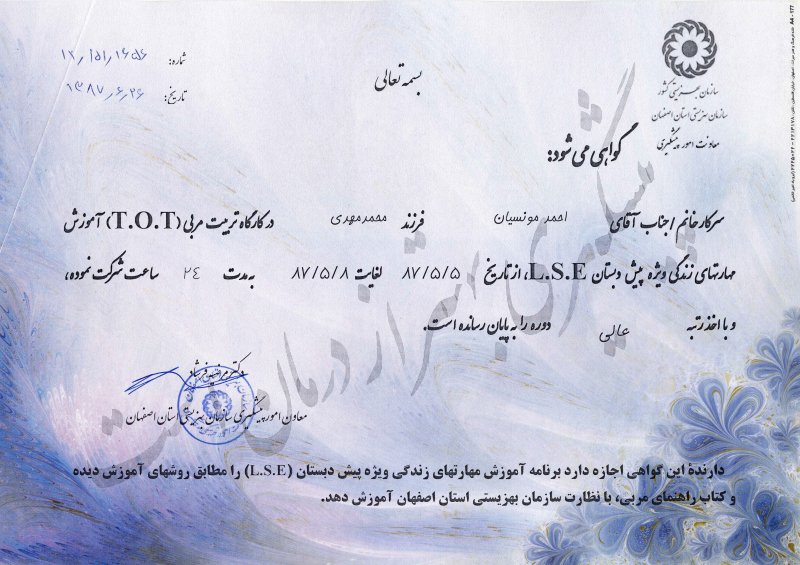 بسمه تعالی
سازمان بهزیستی کشور
سازمان بهزیستی استان اصفهان
معاونت امور پیشگیری
شماره:
تاریخ: ۱۳۸۷٫۶٫۲۶
گواهی می شود:
سرکار خانم / جناب آقای احمد مونسیان فرزند محمدمهدی در کارگاه تربیت مربی (T.O.T) آموزش
مهارتهای زندگی ویژه پیش دبستان L.S.E، از تاریخ ۸۷/۵/۵ لغایت ۸۷/۵/۸ به مدت ۲۴ ساعت شرکت نموده،
و با اخذ رتبه عالی دوره را به پایان رسانده است.
پیشگیری بهتر از درمان است
معاون امور پیشگیری سازمان بهزیستی استان اصفهان
دارندهٔ این گواهی اجازه دارد برنامه آموزش مهارتهای زندگی ویژه پیش دبستان (L.S.E) را مطابق روشهای آموزش دیده
و کتاب راهنمای مربی، با نظارت سازمان بهزیستی استان اصفهان آموزش دهد.